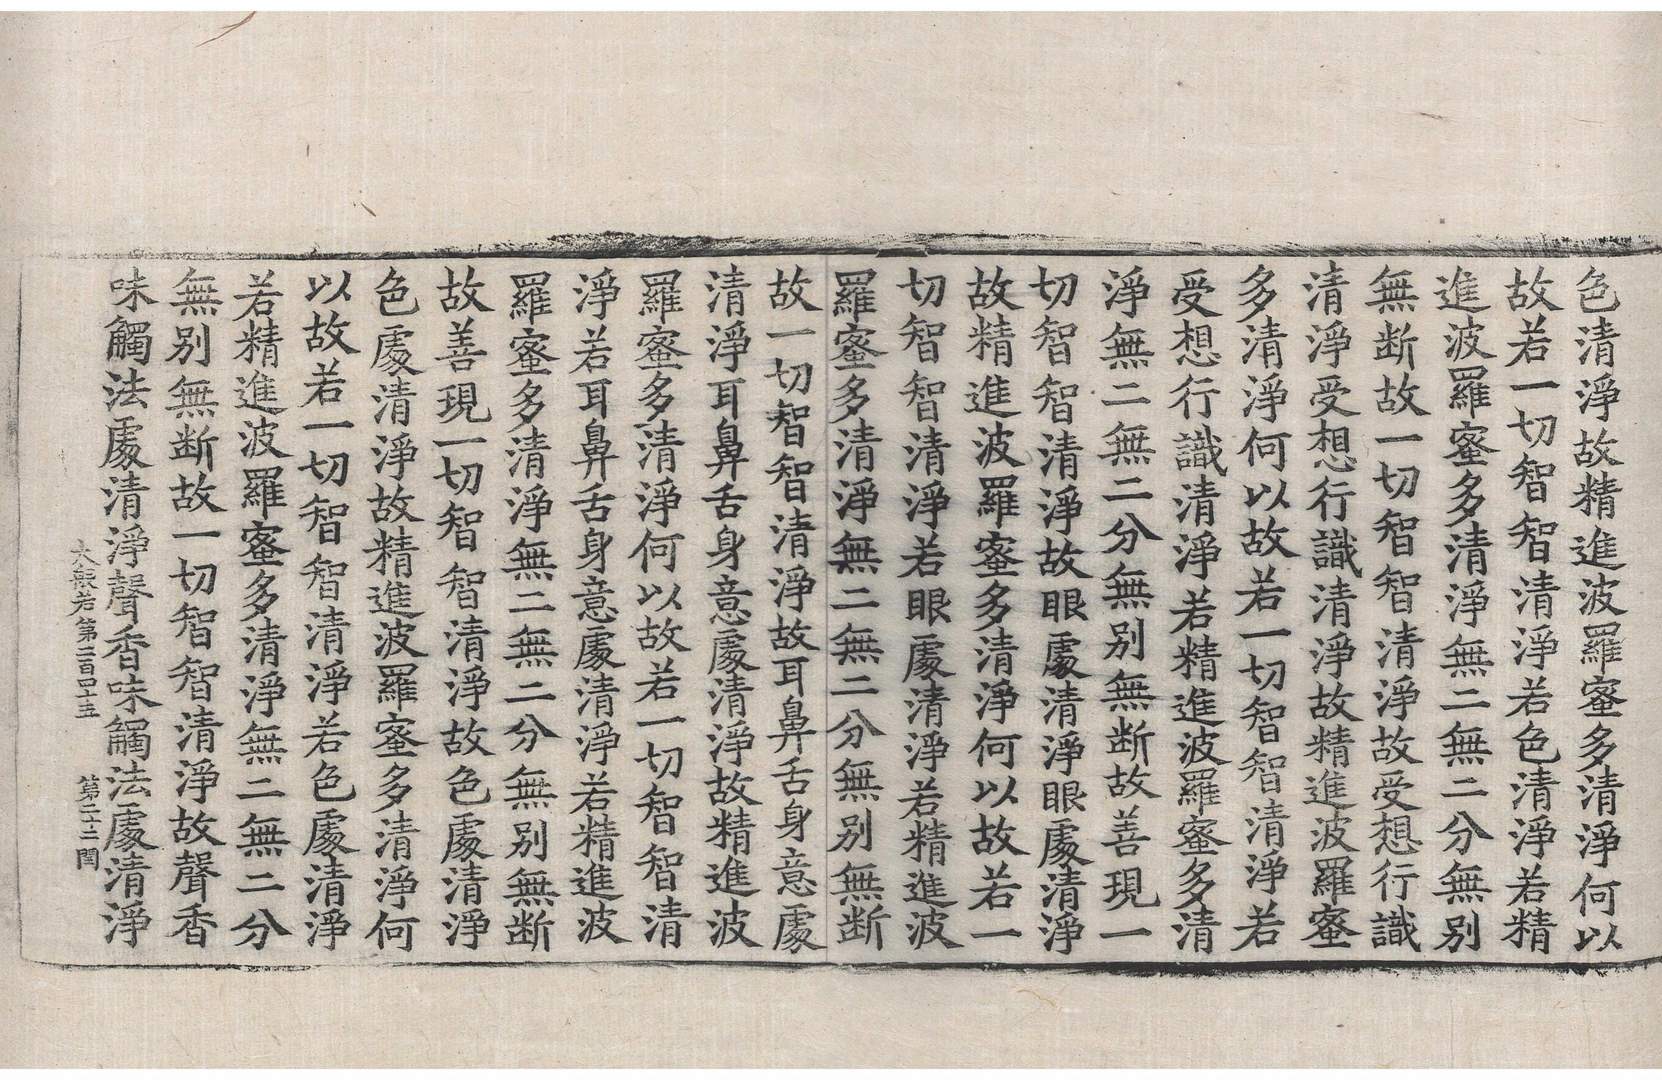 色清淨故精進波羅蜜多清淨何以
故若一切智智清淨若色清淨若精
進波羅蜜多清淨無二無二分無別
無断故一切智智清淨故受想行識
清淨受想行識清淨故精進波羅蜜
多清淨何以故若一切智智清淨若
受想行識清淨若精進波羅蜜多清
淨無二無二分無別無断故善現一
切智智清淨故眼處清淨眼處清淨
故精進波羅蜜多清淨何以故若一
切智智清淨若眼處清淨若精進波
羅蜜多清淨無二無二分無別無断
故一切智智清淨故耳鼻舌身意處
清淨耳鼻舌身意處清淨故精進波
羅蜜多清淨何以故若一切智智清
淨若耳鼻舌身意處清淨若精進波
羅蜜多清淨無二無二分無別無断
故善現一切智智清淨故色處清淨
色處清淨故精進波羅蜜多清淨何
以故若一切智智清淨若色處清淨
若精進波羅蜜多清淨無二無二分
無別無断故一切智智清淨故聲香
味觸法處清淨聲香味觸法處清淨
大般若第二百四十五 第二十二 閏